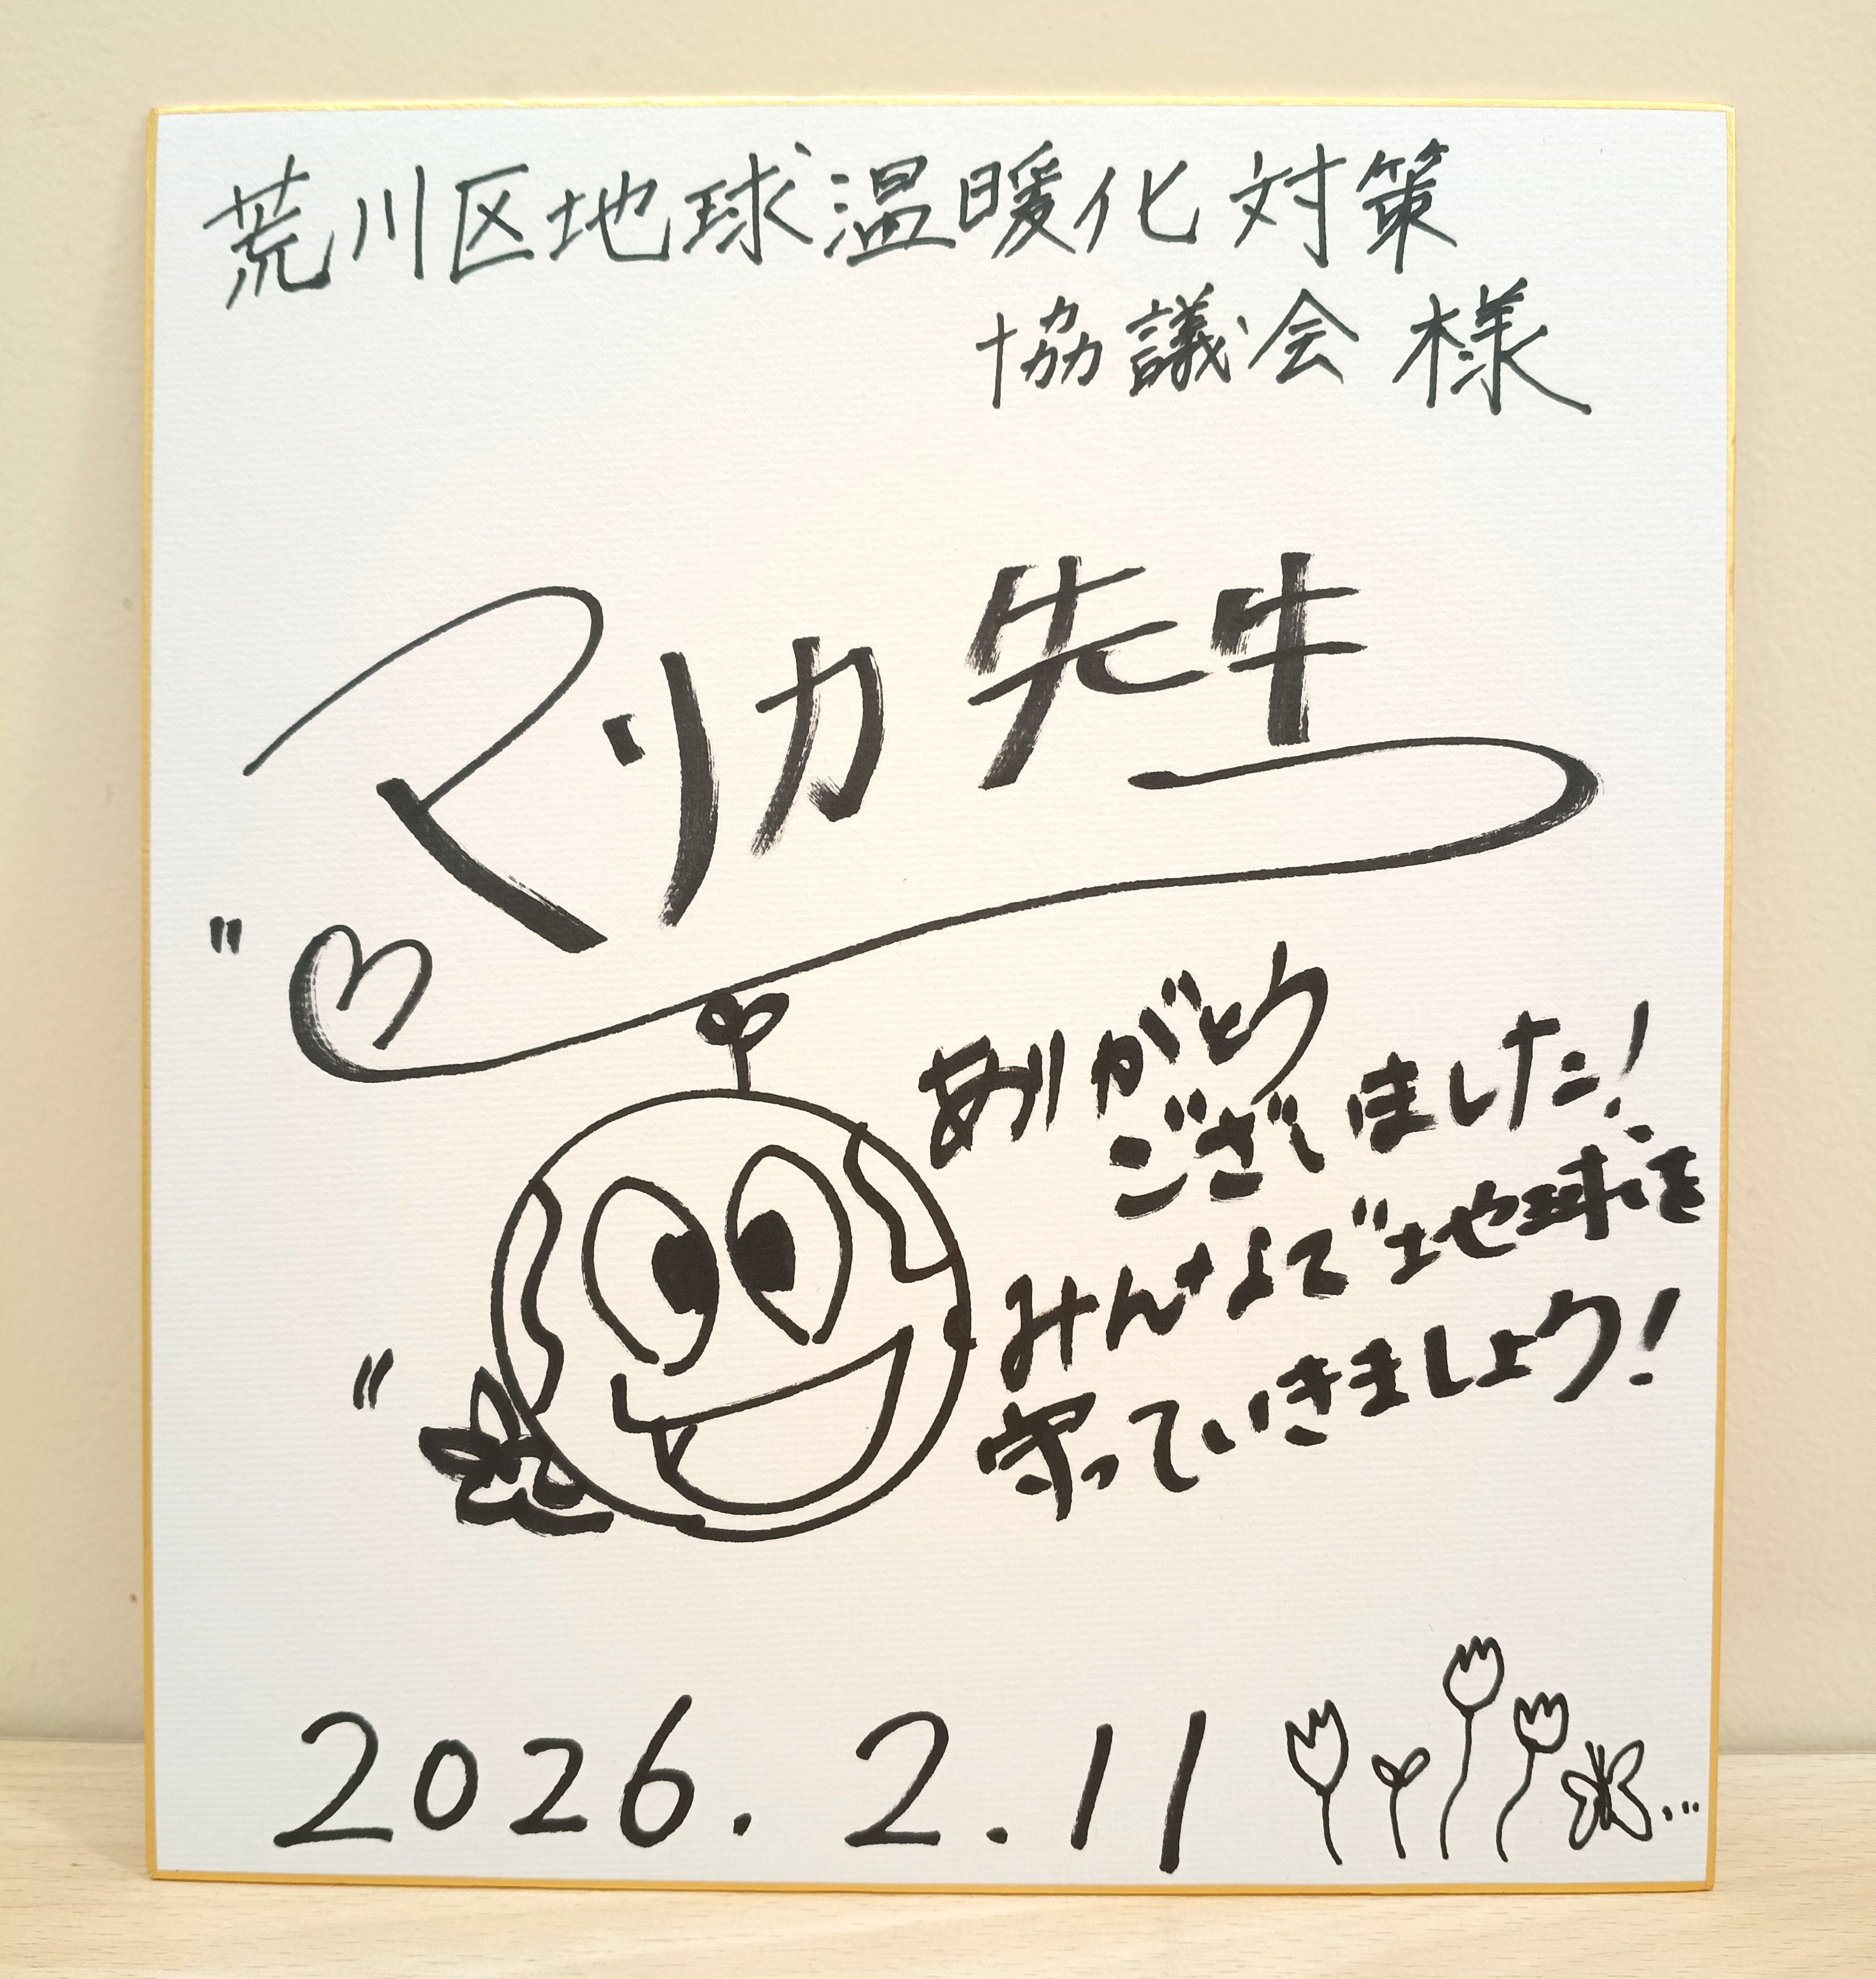 荒川区地球温暖化対策
協議会様
マリカ先生
ありがとう
ございました!
みんなで地球を
守っていきましょう!
2026.2.11